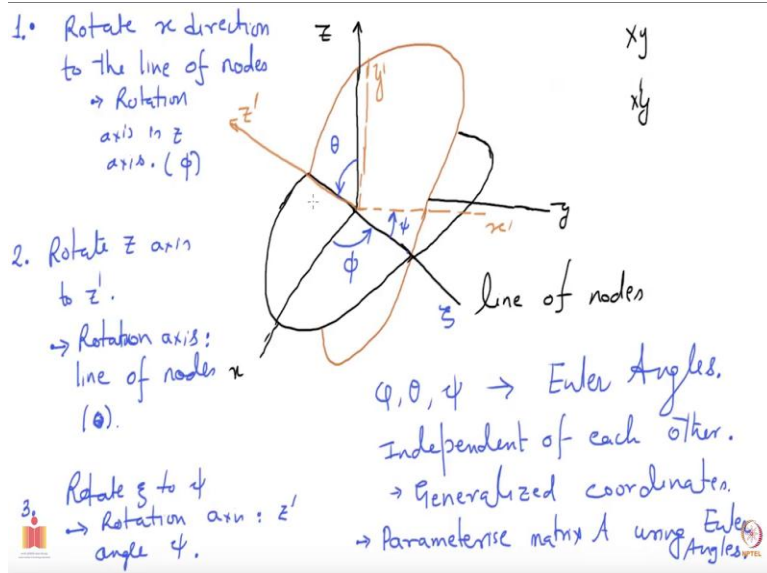 1.• Rotate x direction
to the line of nodes
→ Rotation
axis is z
axis. (ϕ)
2. Rotate z axis
to z'.
→ Rotation axis:
line of nodes
(θ).
3. Rotate ξ to ψ
→ Rotation axis: z'
angle ψ.
z
y'
z'
θ
ψ
x'
y
ϕ
ξ
line of nodes
x
xy
x'y
φ, θ, ψ → Euler Angles.
Independent of each other.
→ Generalized coordinates.
→ Parameterise matrix A using Euler
Angles.
NPTEL